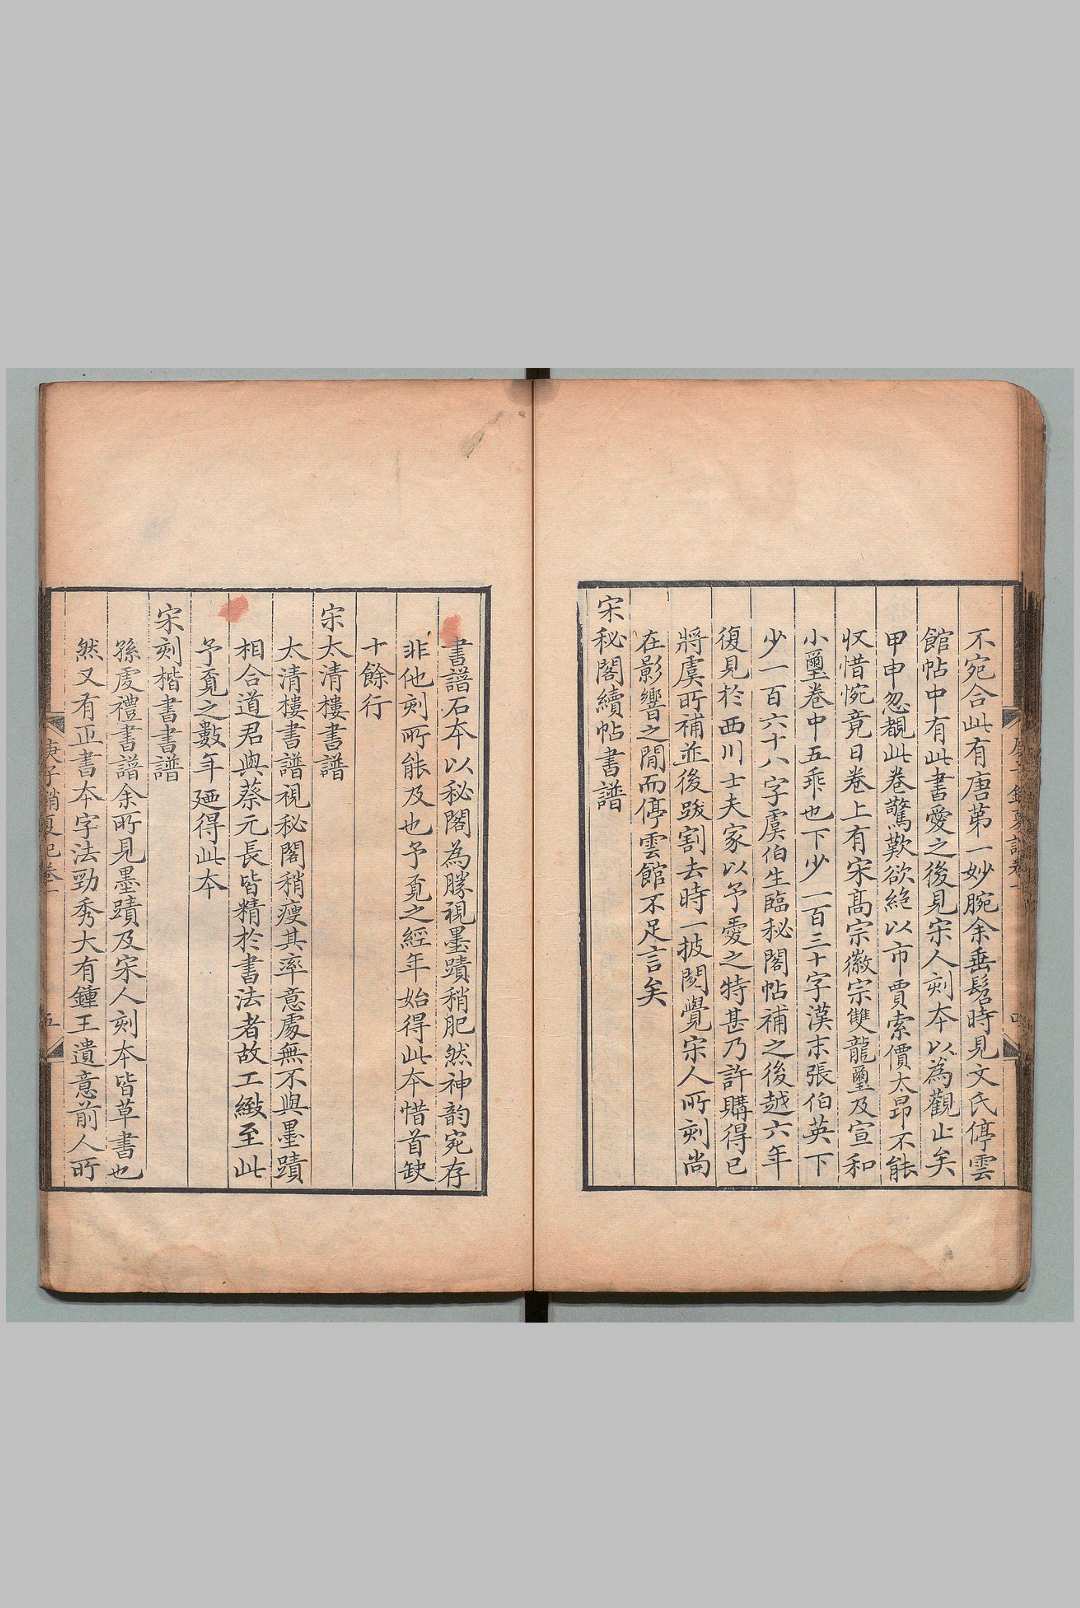 不宛合此有唐苐一妙腕余垂髫時見文氏停雲
館帖中有此書愛之後見宋人刻本以為觀止矣
甲申忽覩此卷驚歎欲絶以市賈索價太昂不能
収惜惋竟日卷上有宋高宗徽宗雙龍璽及宣和
小璽卷中五乖也下少一百三十字漢末張伯英下
少一百六十八字虞伯生臨秘閣帖補之後越六年
復見於西川士夫家以予愛之特甚乃許購得已
將虞所補並後跋割去時一披閱覺宋人所刻尚
在影響之間而停雲館不足言矣
宋秘閣續帖書譜
書譜石本以秘閣為勝視墨蹟稍肥然神韵宛存
非他刻所能及也予覔之經年始得此本惜首缺
十餘行
宋太清樓書譜
太清樓書譜視秘閣稍瘦其率意處無不與墨蹟
相合道君與蔡元長皆精於書法者故工緻至此
予覔之數年廼得此本
宋刻楷書書譜
孫虔禮書譜余所見墨蹟及宋人刻本皆草書也
然又有正書本字法勁秀大有鍾王遺意前人所
庚子銷夏記卷一
五